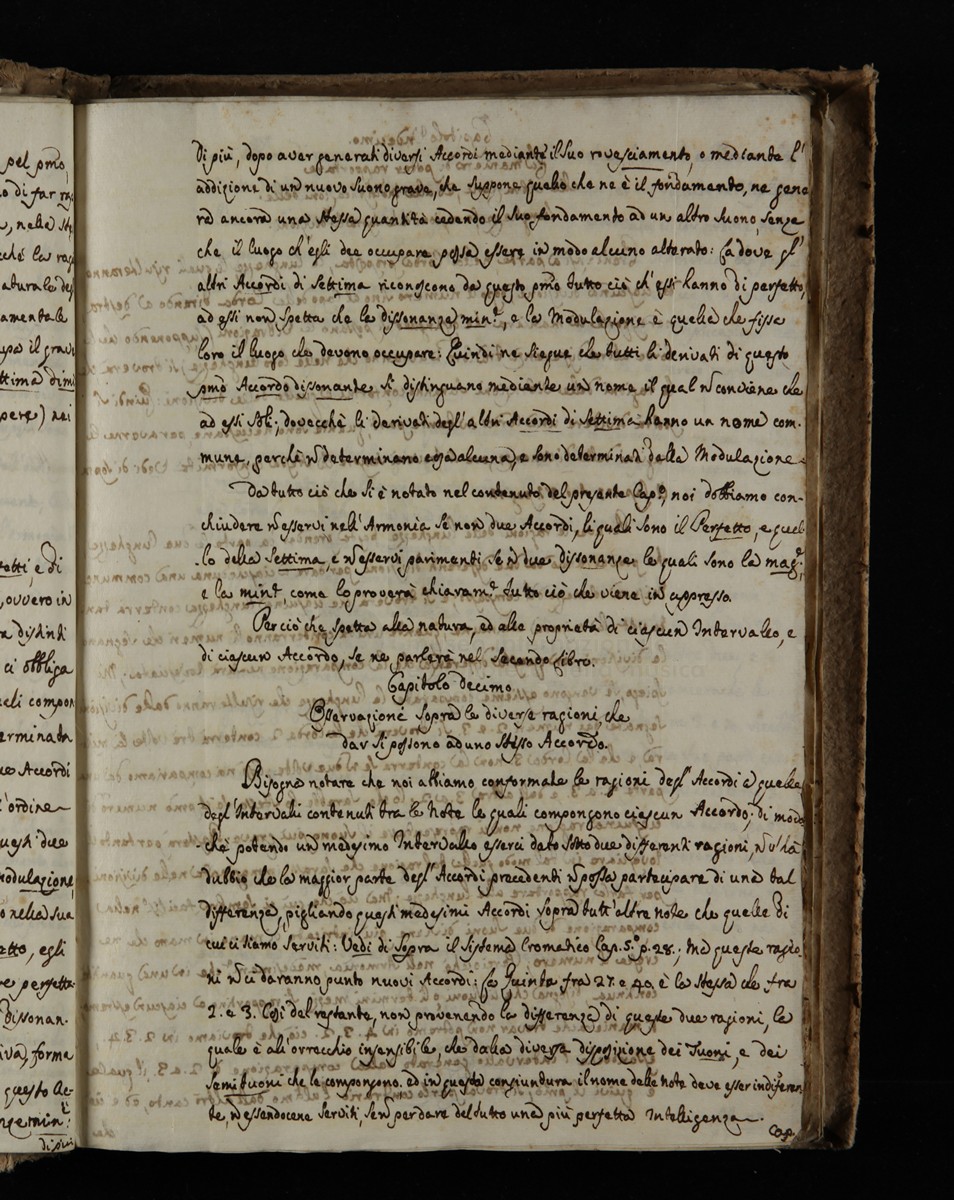 di più, dopo aver generati diversi Accordi mediante il suo rovesciamento, o mediante l'
addizione di un nuovo suono grave, che suppone quello che ne è il fondamento, ne gene
ra ancora una stessa quantità cedendo il suo fondamento ad un altro suono, senza
che il luogo ch'egli dee occupare possa essere in modo alcuno alterato: Là dove gl'
altri Accordi di Settima riconoscono da questo pmo tutto ciò ch'essi hanno di perfetto,
ad essi non spetta che la dissonanza min.e, e la Modulazione è quella che fissa
loro il luogo che devono occupare: Quindi ne siegue che tutti li derivati di questo
pmo Accordo dissonante si distinguano mediante un nome il qual ñ conviene che
ad essi soli; dovecchè li derivati degl'altri Accordi di Settima hanno un nome com-
mune, perchè ñ determinano cosa alcuna, e sono determinati dalla Modulazione.
Da tutto ciò che si è notato nel contenuto del presente Cap.o, noi dobbiamo con-
chiudere ñ esservi nell'Armonia se non due Accordi, li quali sono il Perfetto, e quel-
lo della Settima, e ñ esservi parimenti se ñ due dissonanze le quali sono la mag.e
e la min.e, come lo proverà chiaram.e tutto ciò che viene in appresso.
Per ciò che spetta alla natura, ed alla proprietà di ciascun Intervallo, e
di ciascun Accordo, se ne parlerà nel Secondo Libro.
Capitolo decimo
Osservazione sopra le diverse ragioni, che
dar si possono ad uno stesso Accordo.
Bisogna notare che noi abbiamo conformate le ragioni degl'Accordi à quelle
degl'Intervalli contenuti tra le Note le quali compongono ciascun Accordo; di modo
che potendo un medesimo Intervallo esserci dato sotto due differenti ragioni, ñ v'hà
dubbio che la maggior parte degl'Accordi precedenti ñ possa partecipare di una tal
differenza, pigliando questi medesimi Accordi sopra tutt'altre note che quelle di
cui ci siamo serviti: Vedi di sopra il Sistema Cromatico Cap. 5.o p. 28.; Ma queste ragio
ni ñ ci daranno punto nuovi Accordi: La Quinta frà 27. e 40. è la stessa che fra
2. e 3. Così del restante, non provenendo la differenza di queste due ragioni, la
quale è all'orecchio insensibile, che dalla diversa disposizione dei Tuoni, e dei
Semituoni che le compongono. ed in questa congiuntura il nome delle Note deve esser indifferen
te, ñ essendocene serviti, sen per dare del tutto una più perfetta Intelligenza.
Cap.
pel pmo
amentale
ttima dimi
ovvero in
ci obbliga
erminata
Accordi
l'ordine
modulazione
egli
dissonan-
forma
questo Ac-
di più